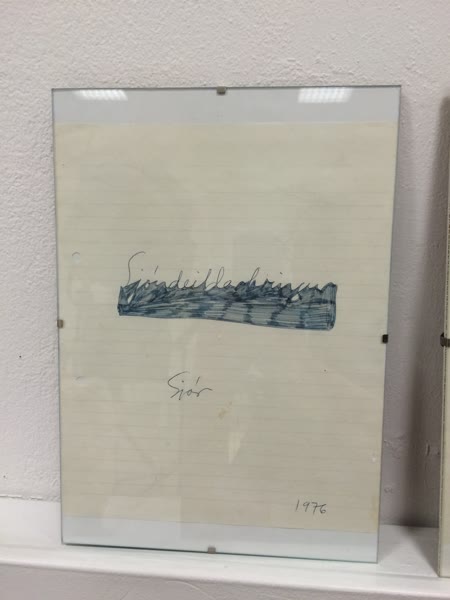 Sjóndeildarhringur
Sjór
1976